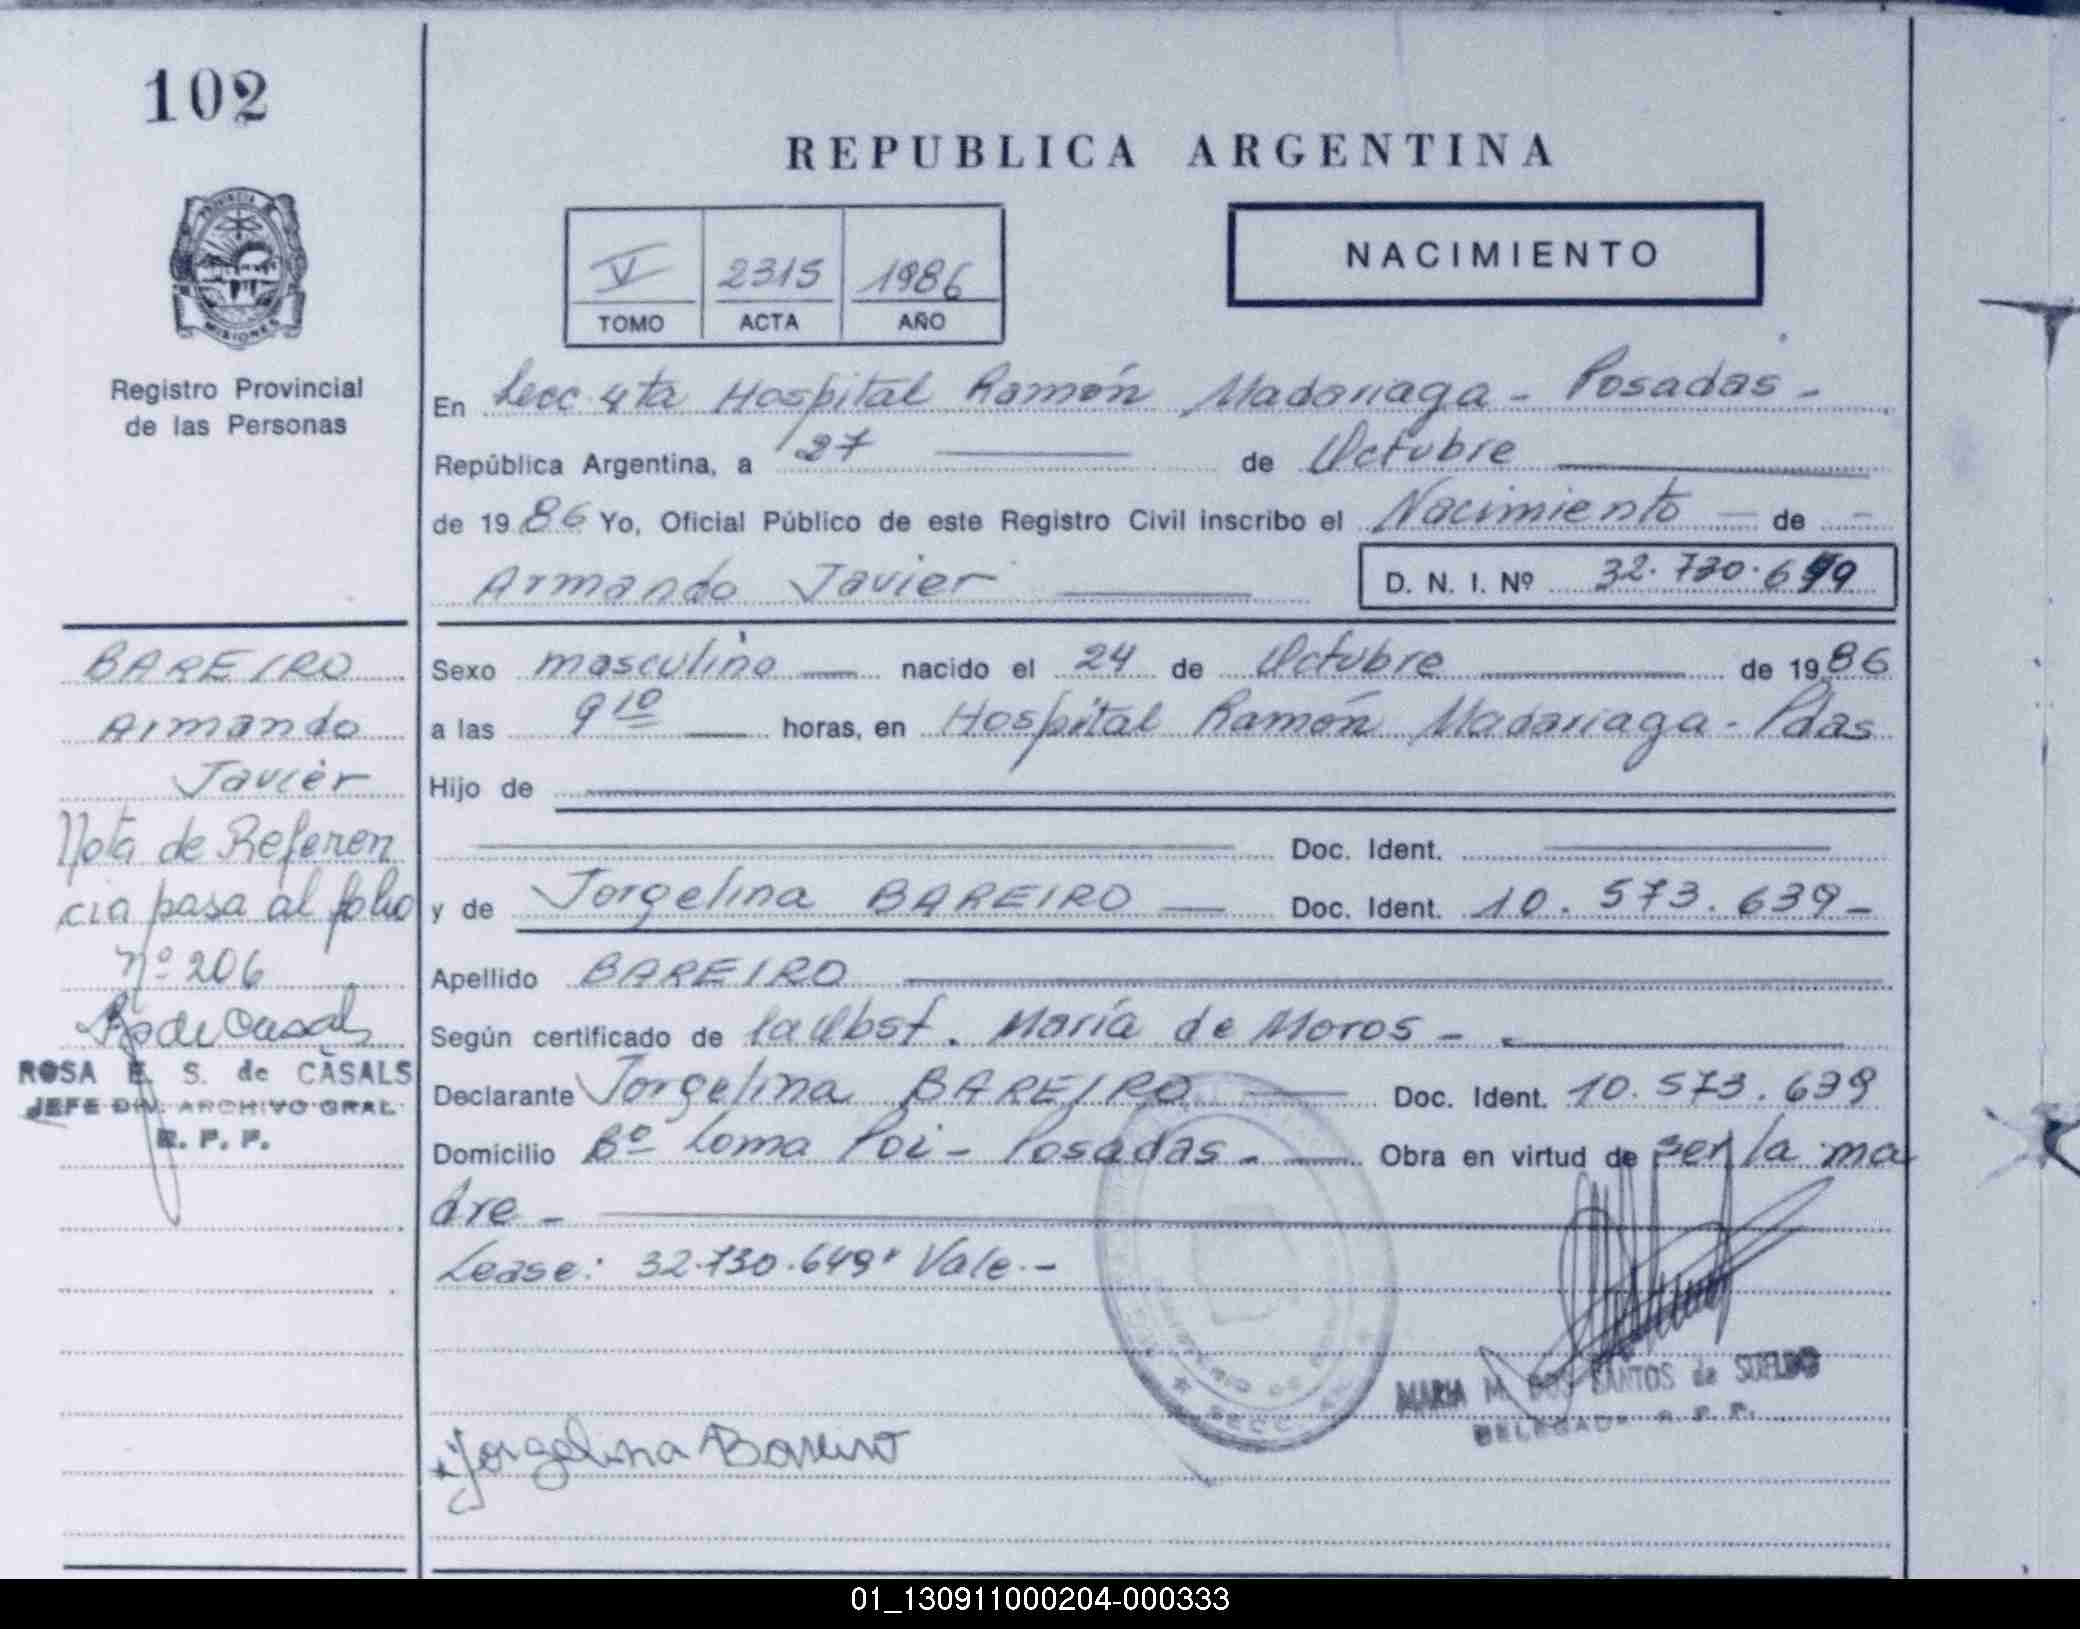 102
REPUBLICA ARGENTINA
PROVINCIA DE
MISIONES
NACIMIENTO
V 2315 1986
TOMO ACTA AÑO
Registro Provincial
de las Personas
En Secc 4ta Hospital Ramón Madariaga - Posadas -
República Argentina, a 27 de Octubre
de 1986 Yo, Oficial Público de este Registro Civil inscribo el Nacimiento - de -
Armando Javier
D. N. I. Nº 32.730.649
BAREIRO
Armando
Javier
Nota de Referen
cia pasa al folio
nº 206
R de Casals
ROSA E. S. de CASALS
JEFE DIV. ARCHIVO GRAL.
R. P. P.
Sexo masculino nacido el 24 de Octubre de 1986
a las 9 10 horas, en Hospital Ramón Madariaga - Pdas
Hijo de
Doc. Ident.
y de Jorgelina BAREIRO Doc. Ident. 10.573.639-
Apellido BAREIRO
Según certificado de la Obst. María de Moros -
Declarante Jorgelina BAREIRO Doc. Ident. 10.573.639
Domicilio Bº Loma Poi - Posadas - Obra en virtud de ser la ma
dre -
Lease: 32.730.649" Vale.-
SECC.
MARIA M. DOS SANTOS de SUELDO
DELEGADA R. P. P.
Jorgelina Bareiro
01_130911000204-000333